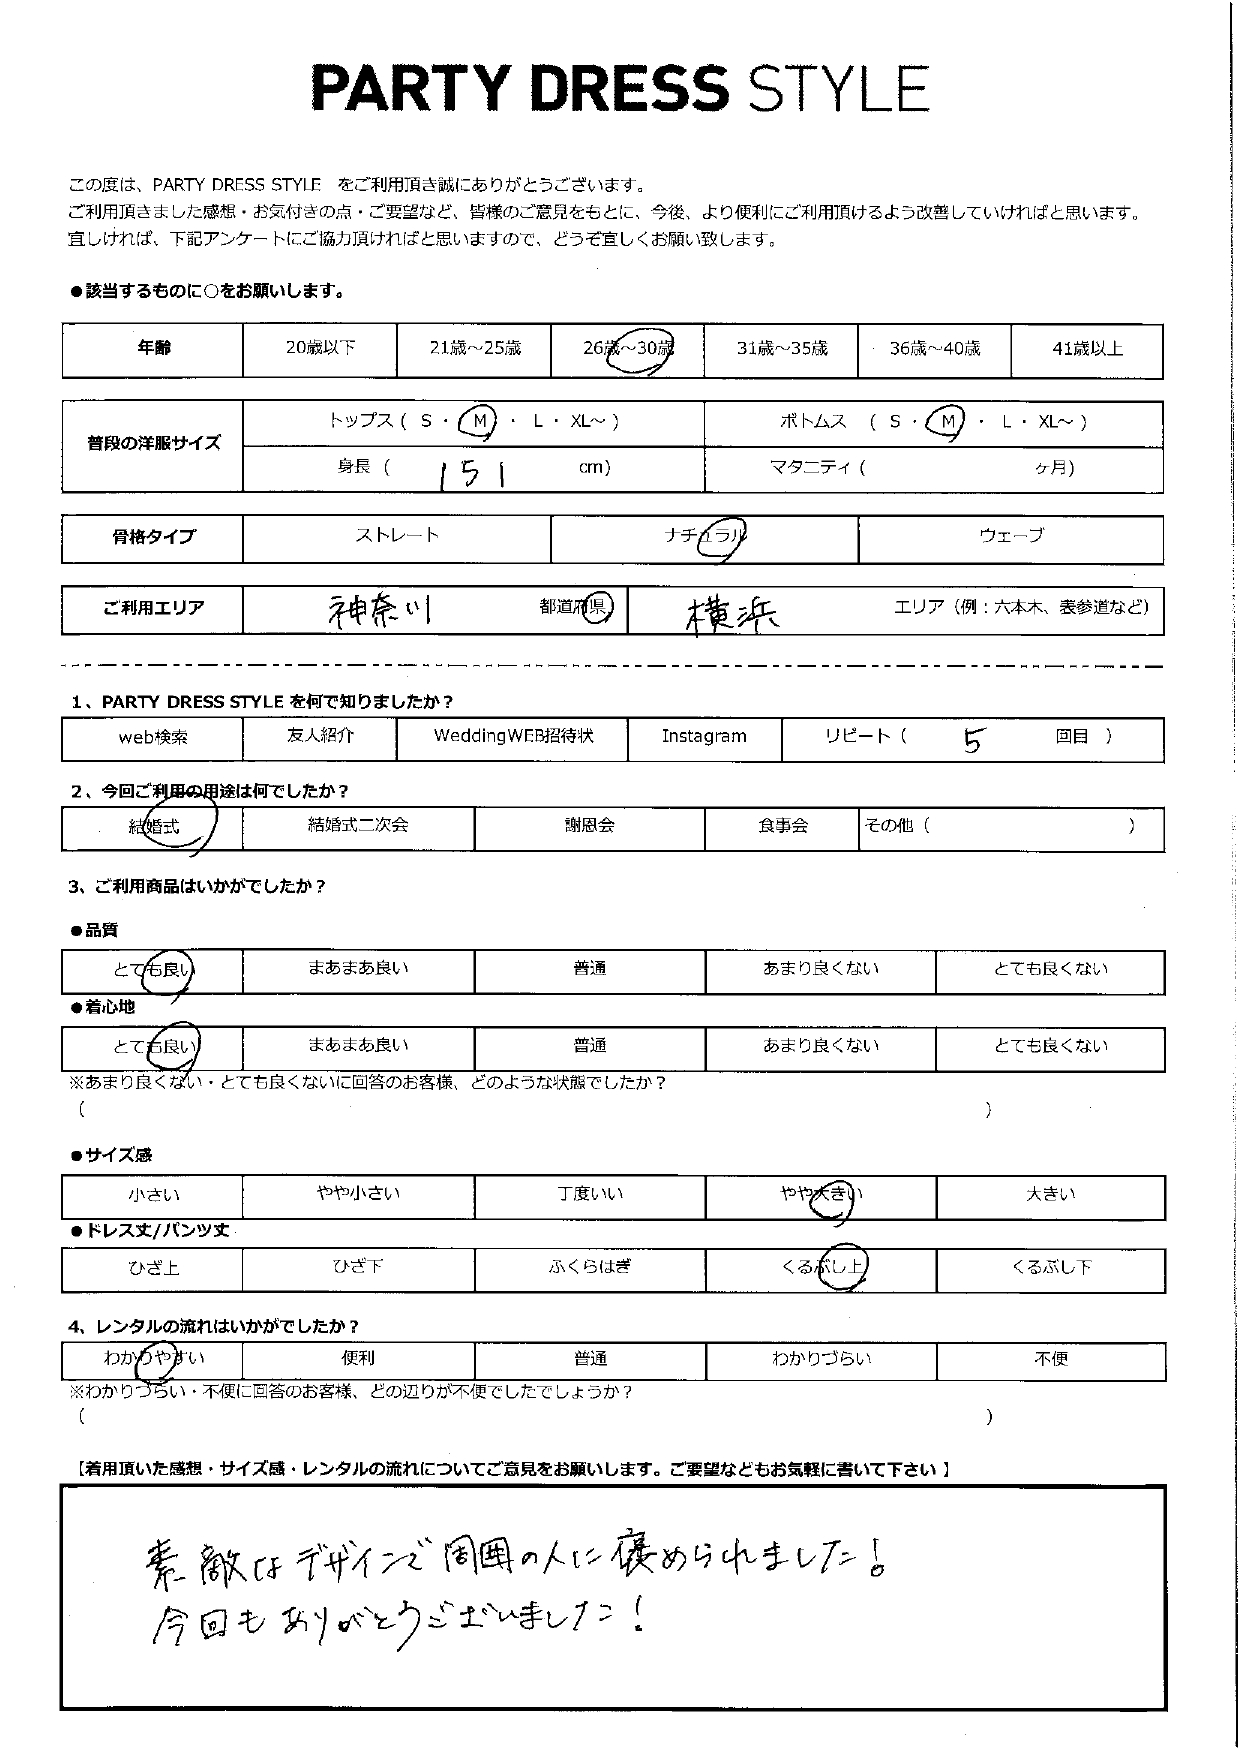 PARTY DRESS STYLE
この度は、PARTY DRESS STYLE をご利用頂き誠にありがとうございます。
ご利用頂きました感想・お気付きの点・ご要望など、皆様のご意見をもとに、今後、より便利にご利用頂けるよう改善していければと思います。
宜しければ、下記アンケートにご協力頂ければと思いますので、どうぞ宜しくお願い致します。
●該当するものに○をお願いします。
年齢 20歳以下 21歳～25歳 26歳～30歳 31歳～35歳 36歳～40歳 41歳以上
普段の洋服サイズ トップス ( S ・ M ・ L ・ XL～ ) ボトムス ( S ・ M ・ L ・ XL～ )
身長 ( 151 cm) マタニティ ( ヶ月)
骨格タイプ ストレート ナチュラル ウェーブ
ご利用エリア 神奈川 都道府県 横浜 エリア（例：六本木、表参道など）
1、PARTY DRESS STYLE を何で知りましたか？
web検索 友人紹介 WeddingWEB招待状 Instagram リピート（ 5 回目 ）
2、今回ご利用の用途は何でしたか？
結婚式 結婚式二次会 謝恩会 食事会 その他（ ）
3、ご利用商品はいかがでしたか？
●品質
とても良い まあまあ良い 普通 あまり良くない とても良くない
●着心地
とても良い まあまあ良い 普通 あまり良くない とても良くない
※あまり良くない・とても良くないに回答のお客様、どのような状態でしたか？
（ ）
●サイズ感
小さい やや小さい 丁度いい やや大きい 大きい
●ドレス丈/パンツ丈
ひざ上 ひざ下 ふくらはぎ くるぶし上 くるぶし下
4、レンタルの流れはいかがでしたか？
わかりやすい 便利 普通 わかりづらい 不便
※わかりづらい・不便に回答のお客様、どの辺りが不便でしたでしょうか？
（ ）
【着用頂いた感想・サイズ感・レンタルの流れについてご意見をお願いします。ご要望などもお気軽に書いて下さい 】
素敵なデザインで周囲の人に褒められました！
今回もありがとうございました！